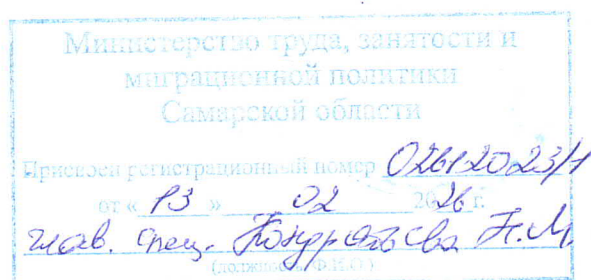 Министерство труда, занятости и
миграционной политики
Самарской области
Присвоен регистрационный номер 02612023/1
от « 13 » 02 2026 г.
глав. спец. Кондратьева Н.М.
(должность, Ф.И.О.)